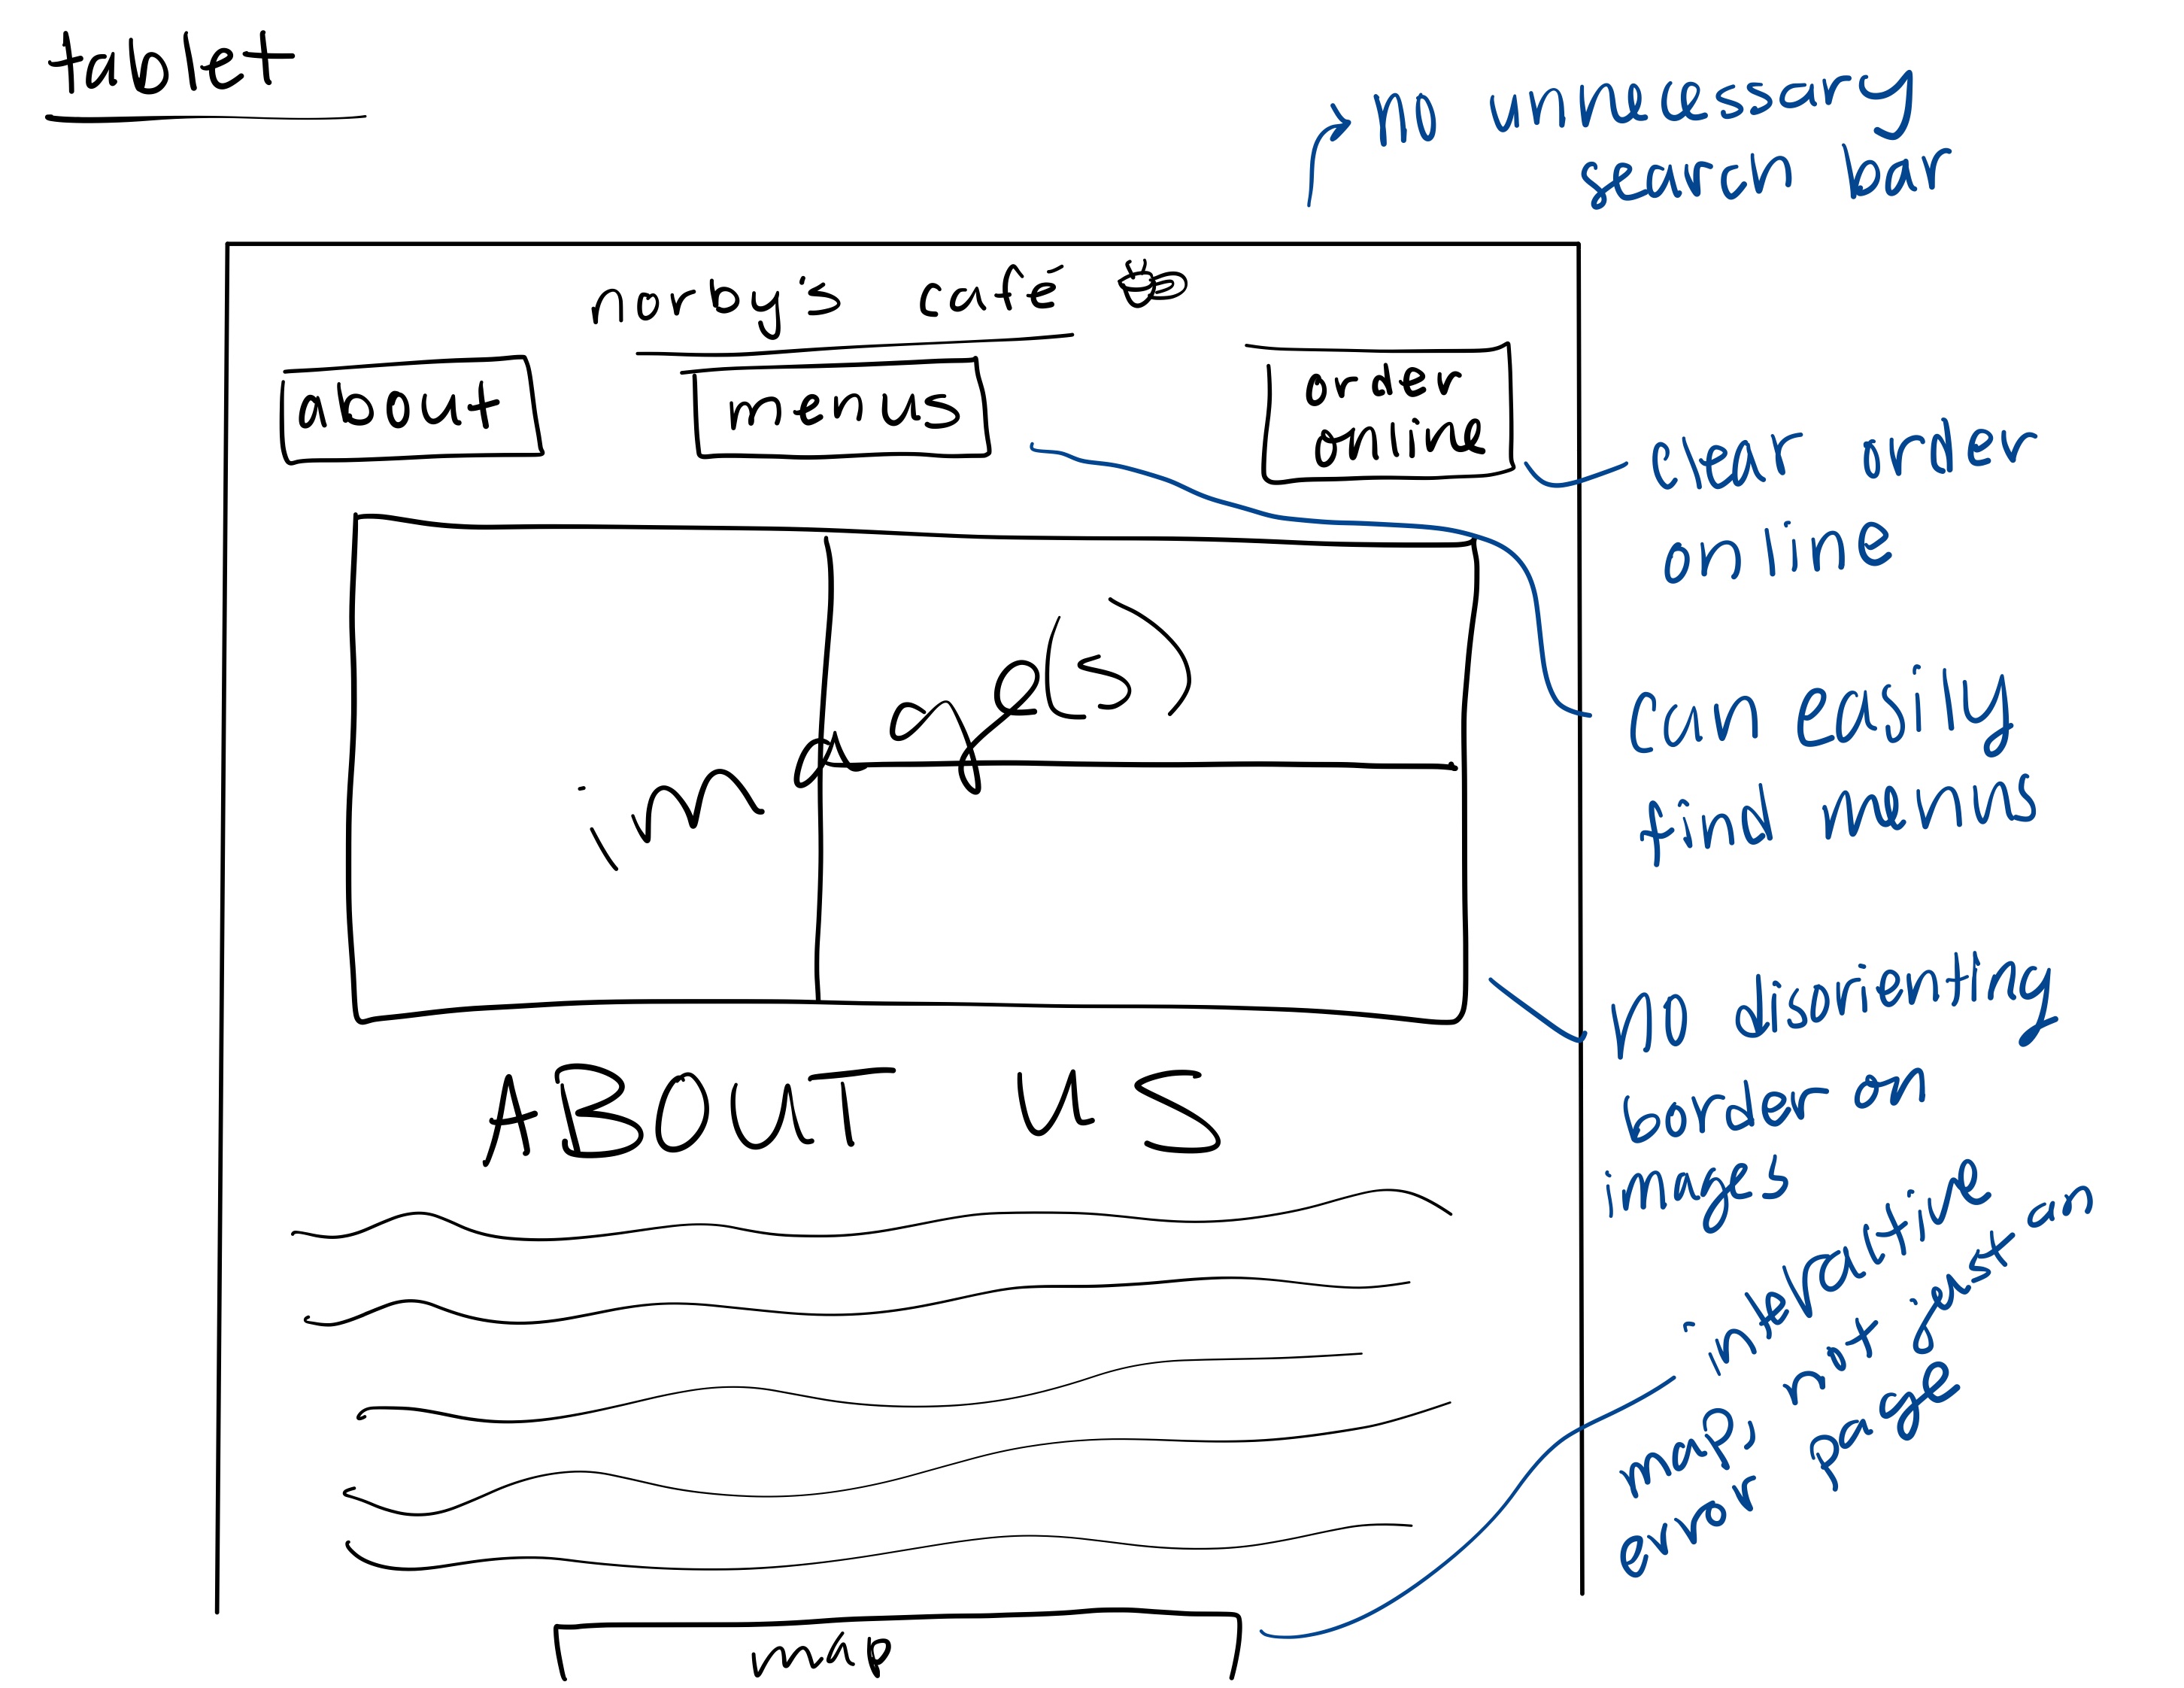 tablet
no unnecessary
search bar
norby's café
about
menus
order
online
clear order
online
image(s)
can easily
find menus
no disorienting
border on
images
ABOUT US
interactive
map, not just an
error page
map